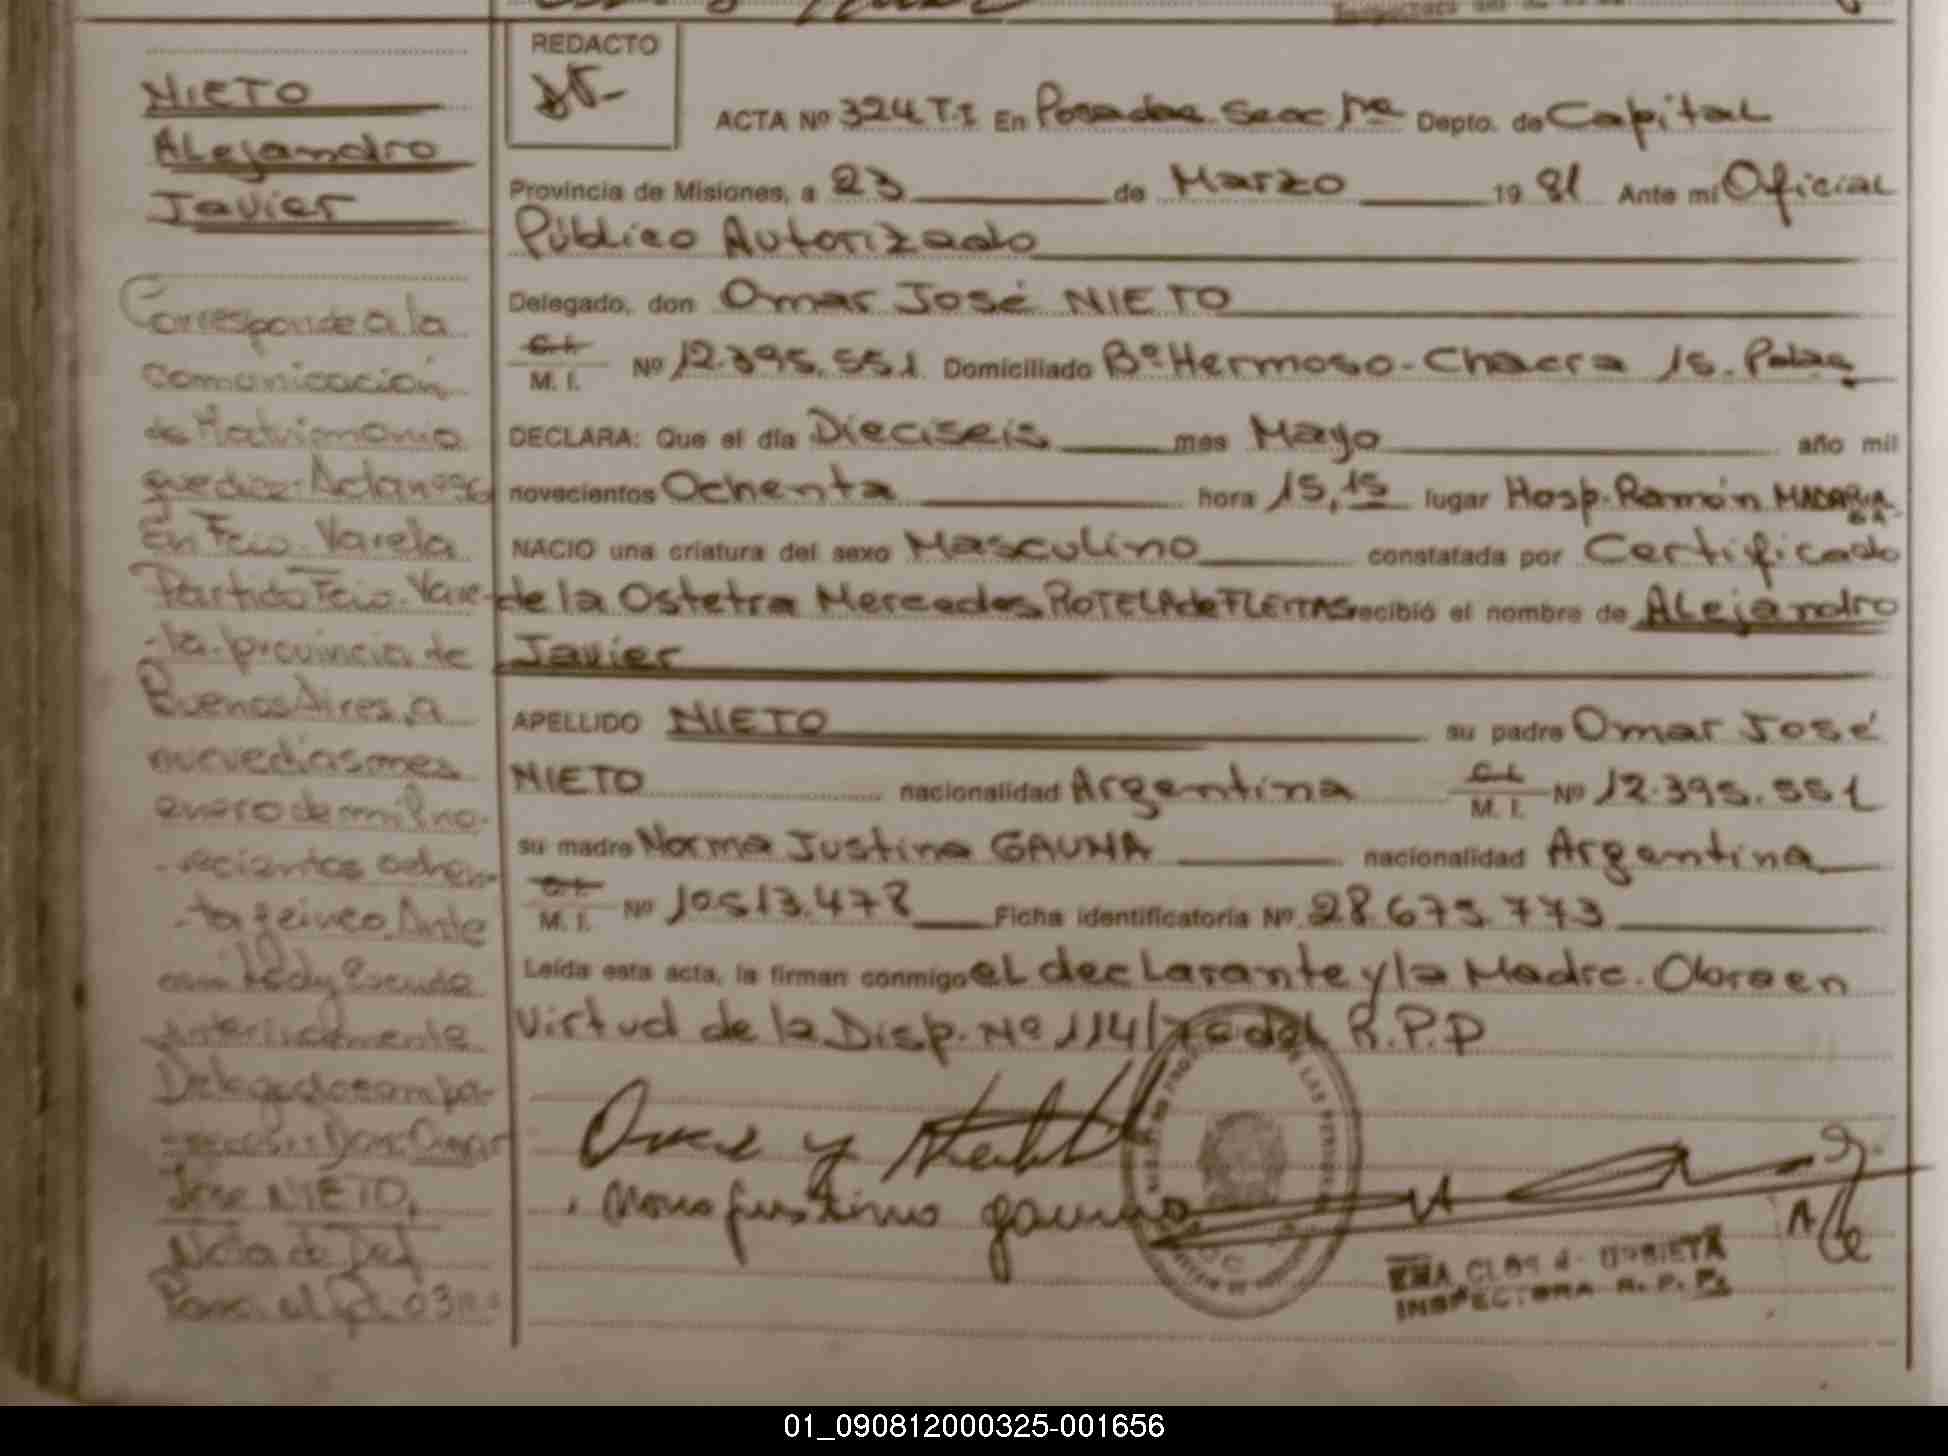 NIETO
Alejandro
Javier
Corresponde a la
comunicación
de Matrimonio
que dice: Acta nº
En Fcio. Varela
Partido Fcio. Vare-
-la. provincia de
Buenos Aires, a
nueve dias mes
enero de mil no-
-vecientos ochen-
-ta y cinco. Ante
Delegado compa-
Don: Omar
José NIETO,
Nota de Def
REDACTO
ACTA Nº 324 T.I En Posadas Secc 1ra Depto. de Capital
Provincia de Misiones, a 23 de Marzo 1981 Ante mí Oficial
Público Autorizado
Delegado, don Omar José NIETO
C.I.
M. I. Nº 12.395.551 Domiciliado Bº Hermoso - Chacra 15. Pdas
DECLARA: Que el día Dieciseis mes Mayo año mil
novecientos Ochenta hora 15,15 lugar Hosp. Ramón MADARIAGA
NACIO una criatura del sexo Masculino constatada por Certificado
de la Ostetra Mercedes ROTELA de FLEITAS recibió el nombre de Alejandro
Javier
APELLIDO NIETO su padre Omar José
NIETO nacionalidad Argentina C.I. M. I. Nº 12.395.551
su madre Norma Justina GAUNA nacionalidad Argentina
C.I.
M. I. Nº 10.513.478 Ficha identificatoria Nº 28.675.773
Leída esta acta, la firman conmigo el declarante y la Madre. Obra en
Virtud de la Disp. Nº 114/76 del R.P.P
Norma justina gauna
INSPECTORA R. P. P.
01_090812000325-001656